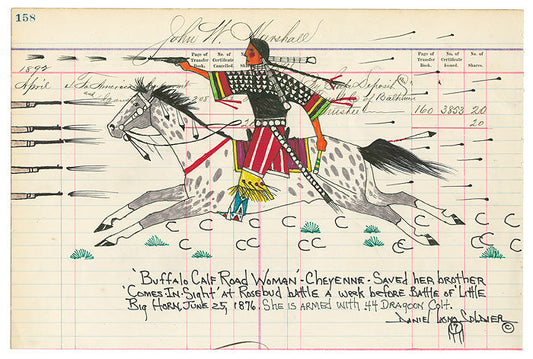 158
John W. Marshall
Page of Transfer Book. No. of Certificate Cancelled. No. of
Page of Transfer Book. No. of Certificate Issued. No. of Shares.
1892
April
160 3853 20
20
"Buffalo Calf Road Woman" - Cheyenne - Saved her brother
'Comes-In-Sight' at Rosebud battle a week before Battle of Little
Big Horn, June 25, 1876. She is armed with .44 Dragoon Colt.
Daniel Long Soldier ©